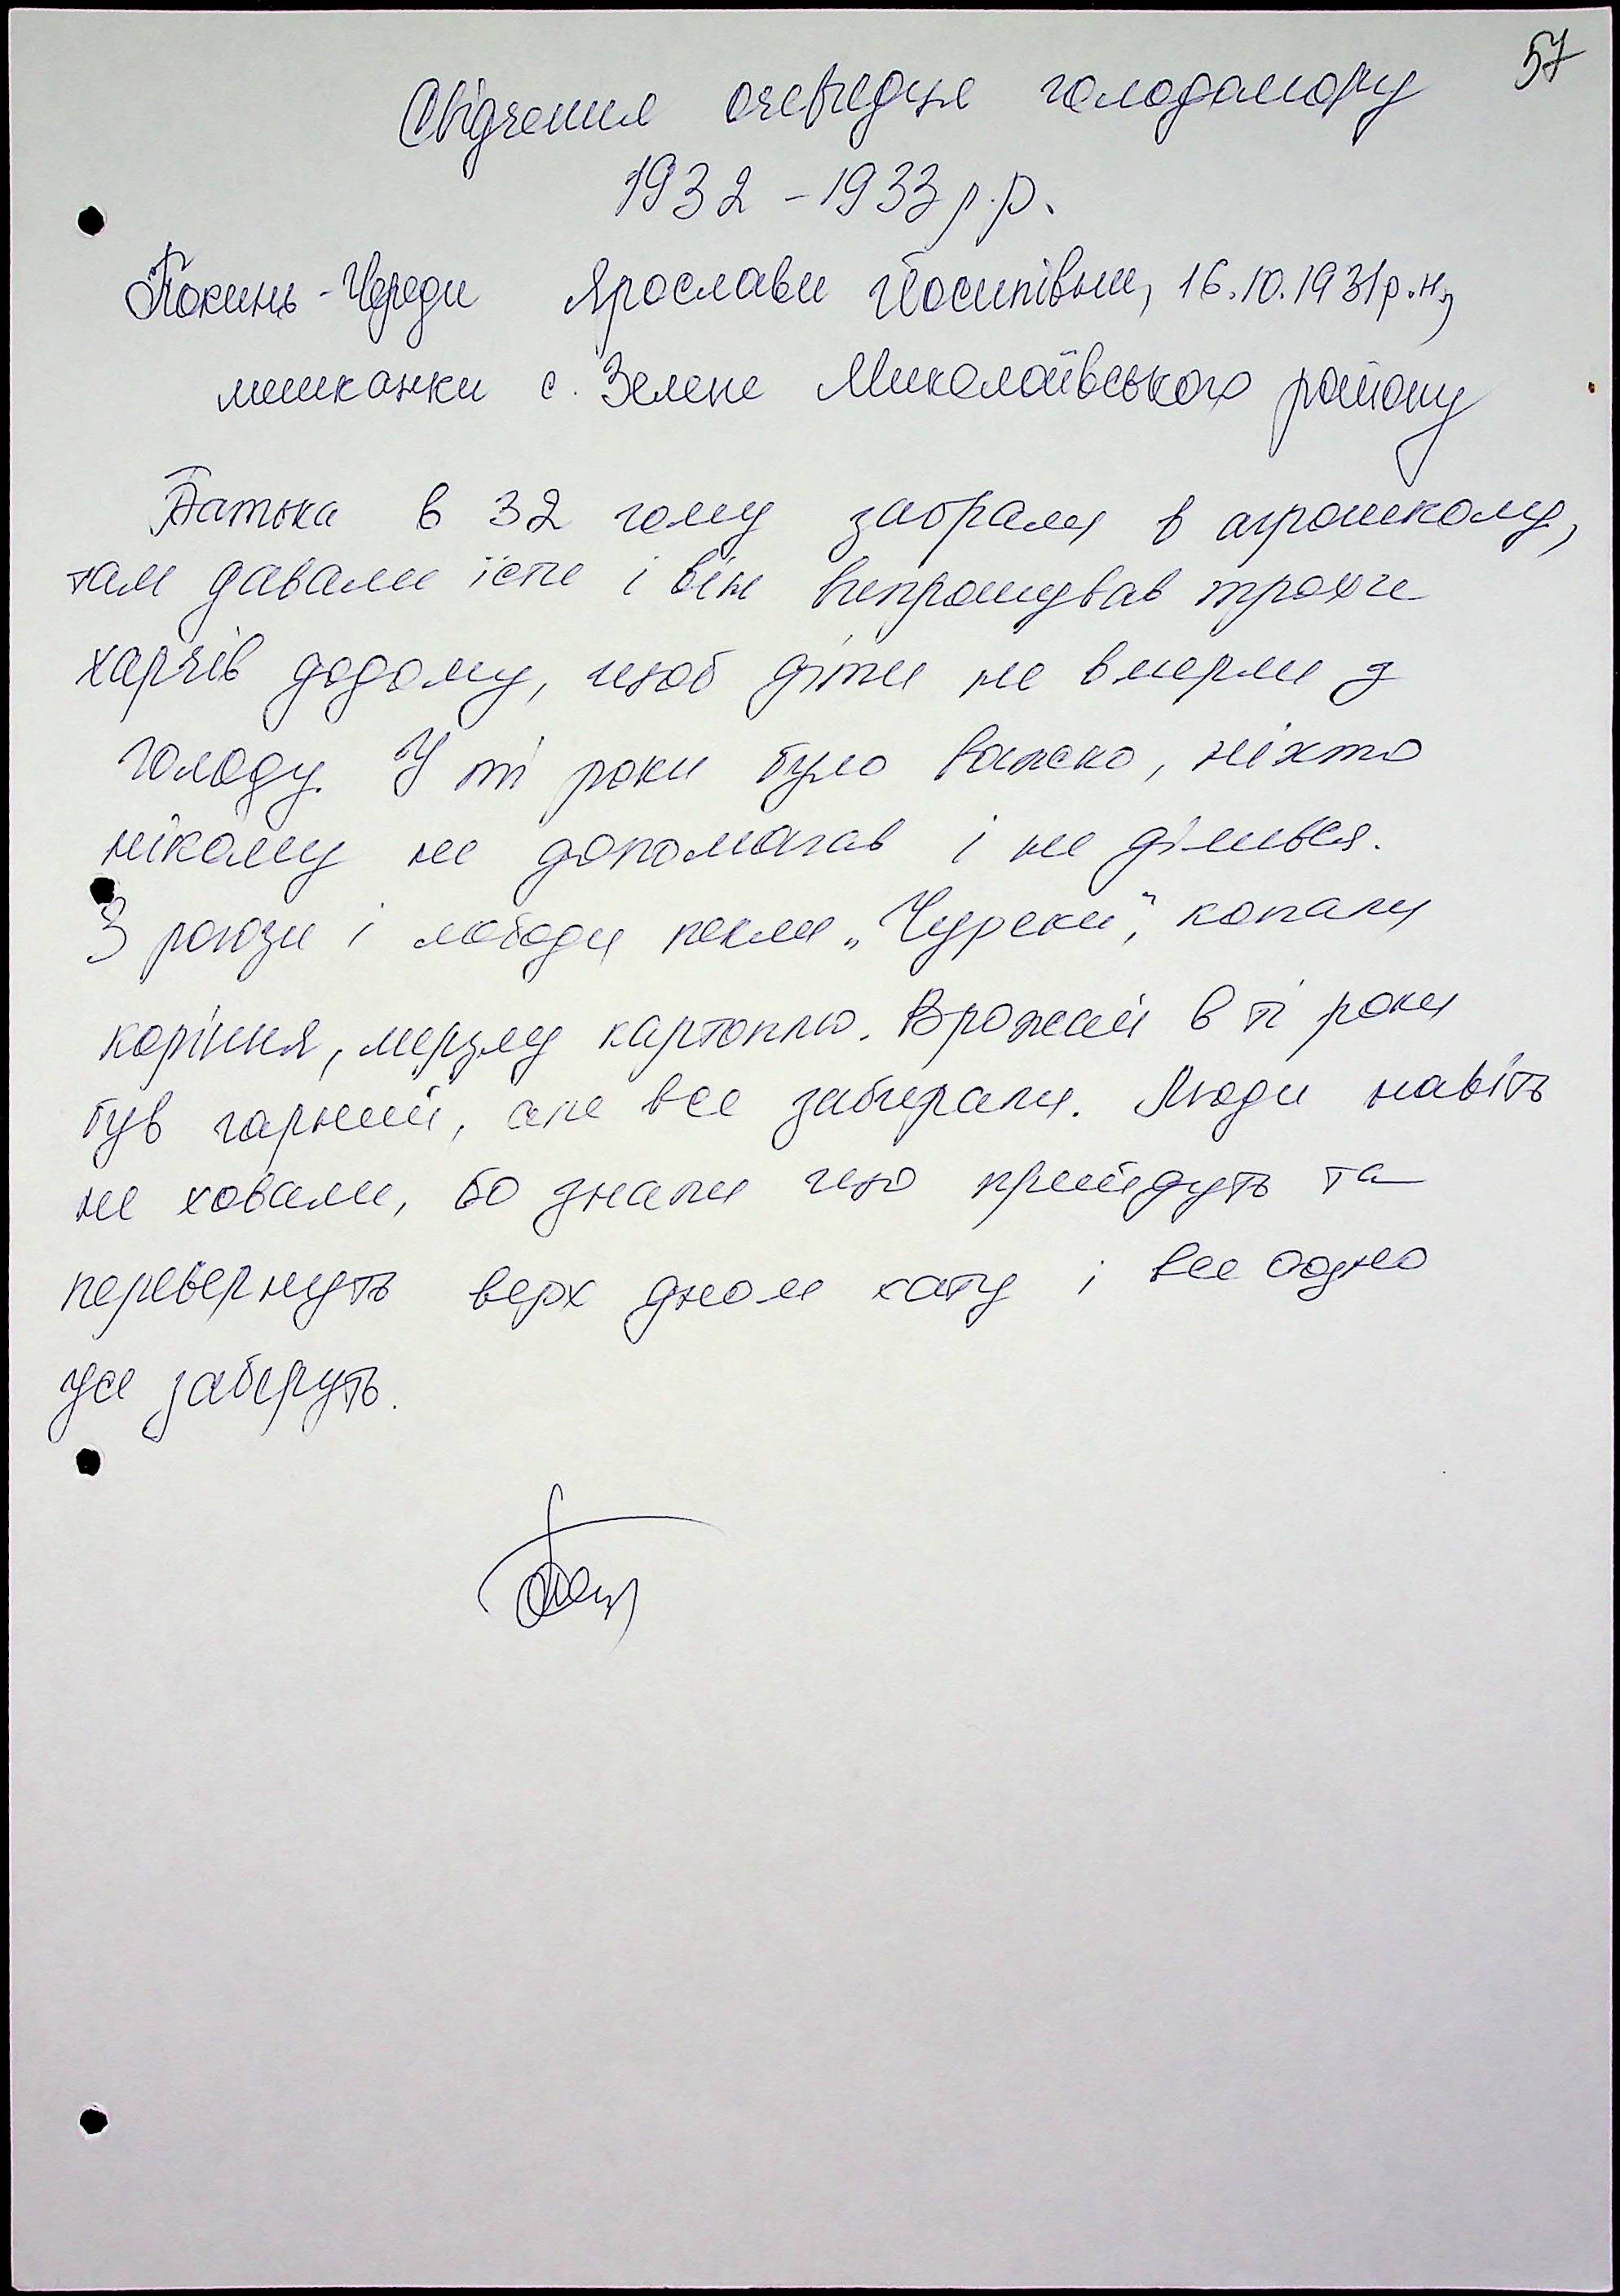 57
Свідчення очевидця голодомору
1932 - 1933 р.р.
Покинь-Череди Ярослави Йосипівни, 16.10.1931 р.н.,
мешканки с. Зелене Миколаївського району
Батька в 32 гому забрали в агрошколу,
там давали їсти і він випрошував трохи
харчів додому, щоб діти не вмерли з
голоду. У ті роки було важко, ніхто
нікому не допомагав і не ділився.
З рогози і лободи пекли „Чуреки", копали
коріння, мерзлу картоплю. Врожай в ті роки
був гарний, але все забирали. Люди навіть
не ховали, бо знали що прийдуть та
перевернуть верх дном хату і все одно
усе заберуть.